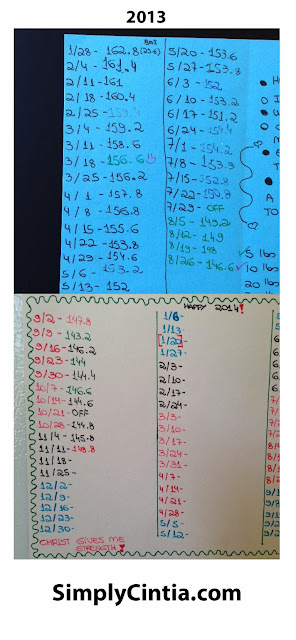 2013
BMI
1/28- 162.8(25.6)
2/4- 161.4
2/11-161
2/18-160.4
2/25-
3/4-159.2
3/11-158.6
3/18-156.6
3/25-156.2
4/1-157.8
4/8-156.8
4/15-155.6
4/22-153.8
4/29-154.6
5/6-153.2
5/13-152
5/20-153.6
5/27-153.8
6/3-152
6/10-153.2
6/17-151.2
6/24-154.4
7/1-154.2
7/8-153.3
7/15-152.8
7/22-
7/29-OFF
8/5-149.2
8/12-149
8/19-148
8/26-146.6
5 lbs
10 lbs
20
HAPPY 2014!
9/2-147.8
9/9-143.2
9/16-145.2
9/23-144
9/30-144.4
10/7-146.6
10/14-144.6
10/21-OFF
10/28-144.8
11/4-145.8
11/11-148.8
11/18-
11/25-
12/2-
12/9-
12/16-
12/23-
12/30-
CHRIST GIVES ME
STRENGTH!
1/6-
1/13-
[1/20-
1/27-
2/3-
2/10-
2/17-
2/24-
3/3-
3/10-
3/17-
3/24-
3/31-
4/7-
4/14-
4/21-
4/28-
5/5-
5/12-
SimplyCintia.com